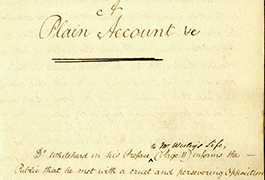 of
Plain Account &c
to Mr Wesley's Life,
Dr Whitehead in his Preface (Page 11) informs the —
Public that he met with a cruel and persevering Opposition